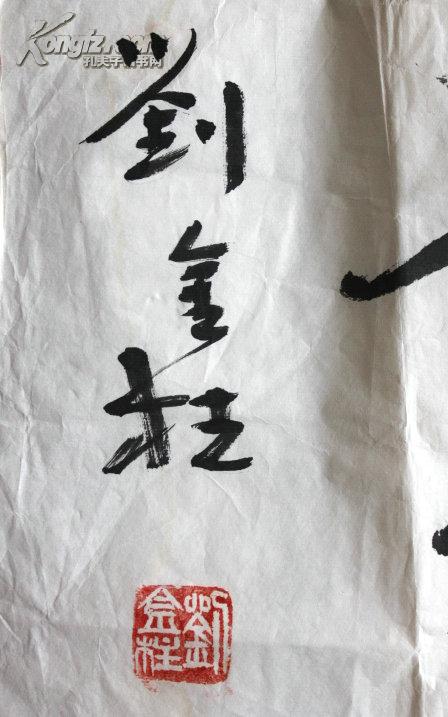 Kongfz.com
孔夫子旧书网
劉金柱
劉金柱